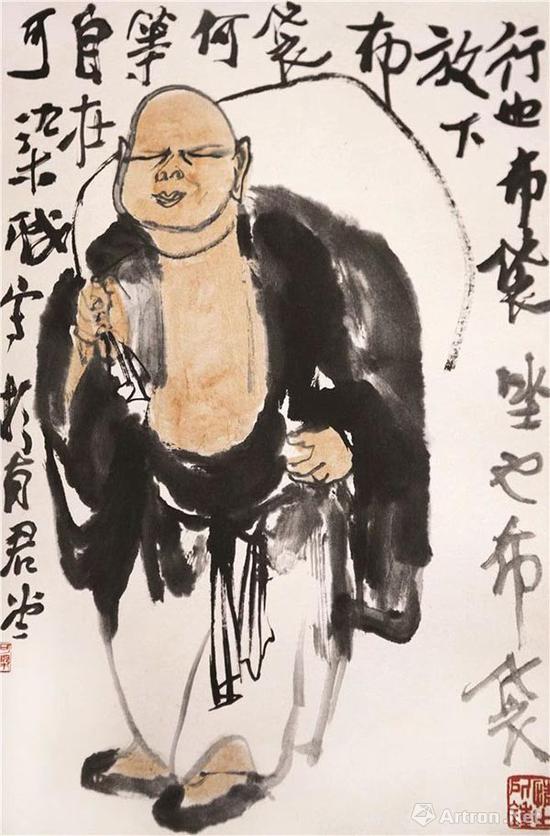 行也布袋坐也布袋
放下
布
袋
何
等
自在
可染戲寫於有君堂
Artron.Net